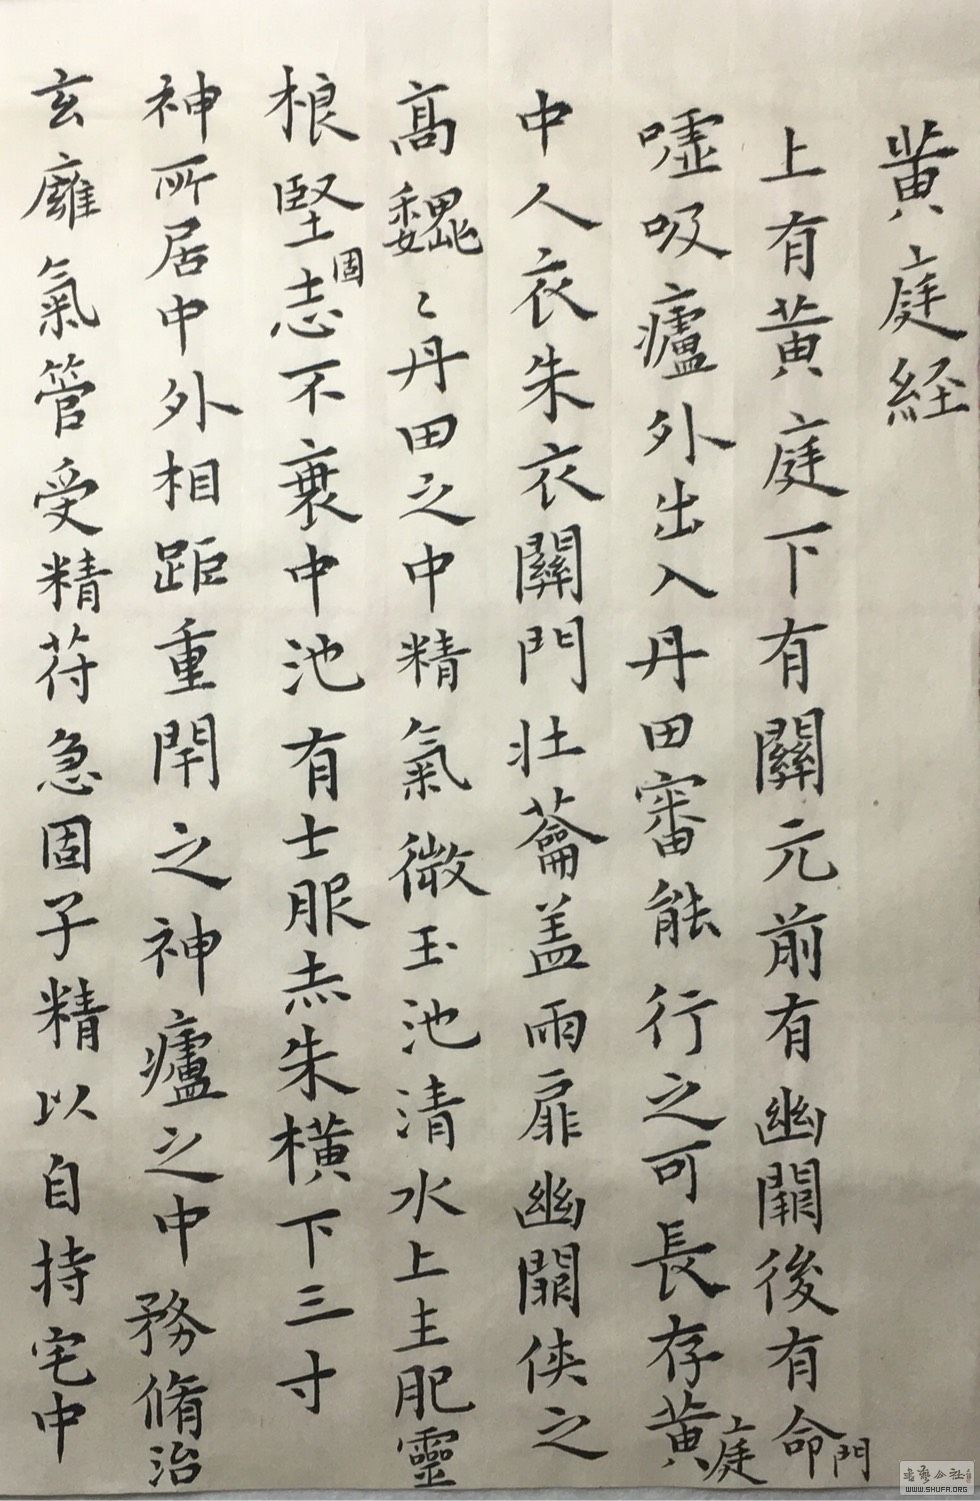 黄庭経
上有黄庭下有關元前有幽闕後有命門
嘘吸廬外出入丹田審能行之可長存黄庭
中人衣朱衣關門壮蘥盖兩扉幽闕侠之
高魏〻丹田之中精氣微玉池清水上生肥靈
根堅固志不衰中池有士服赤朱横下三寸
神所居中外相距重閇之神廬之中務脩治
玄廱氣管受精符急固子精以自持宅中
書藝公社
WWW.SHUFA.ORG